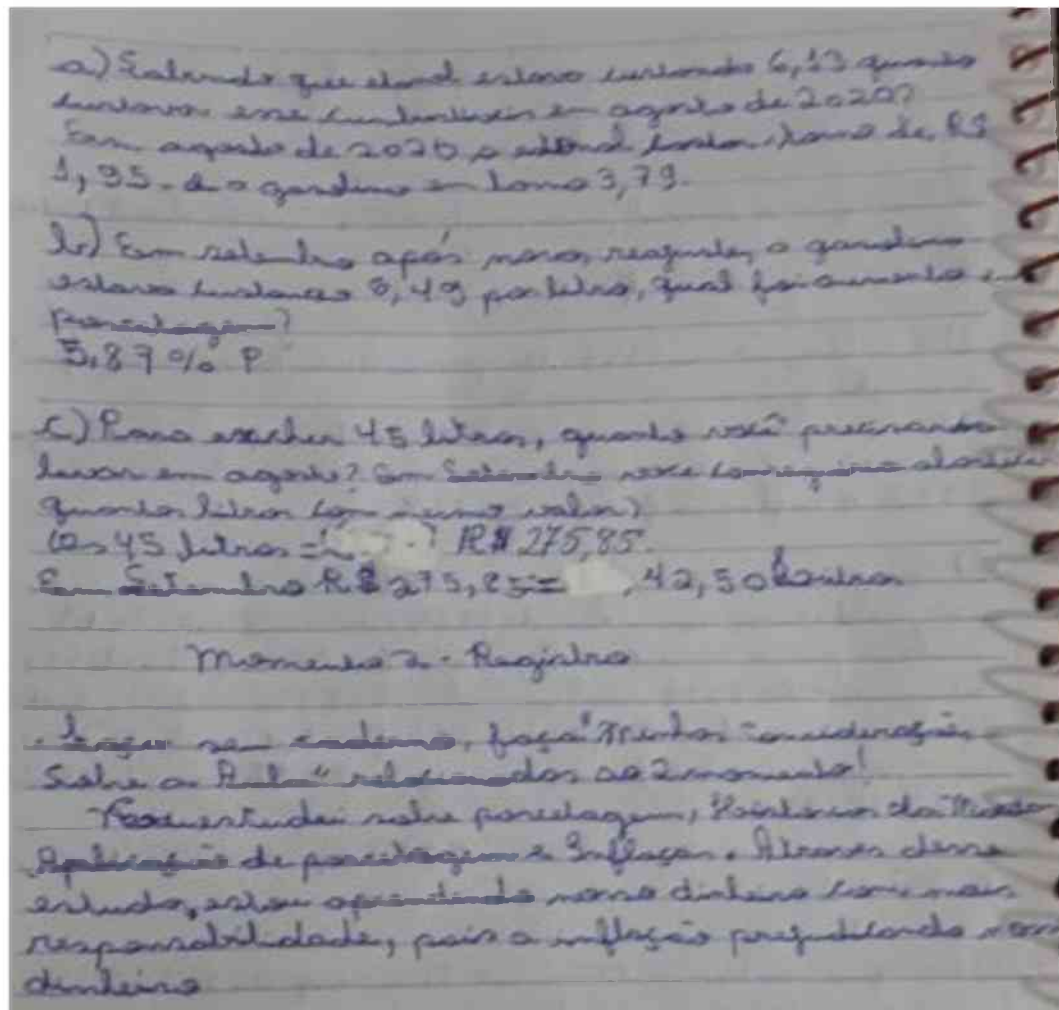 a) Sabendo que etanol estava custando 6,13 quanto
custava esse combustível em agosto de 2020?
Em agosto de 2020, o etanol custou torno de R$
1,95. e a gasolina em torno 3,79.
b) Em setembro após novo reajuste, a gasolina
estava custando 6,49 por litro, qual foi aumento em
porcentagem?
5,87 % P
c) Para encher 45 litros, quanto você precisando
levar em agosto? Em Setembro você conseguiria abastecer
quantos litros com mesmo valor?
Os 45 litros = R$ 275,85.
Em Setembro R$ 275,85 = 42,50 Litros
Momento 2 - Registro
seu caderno, faça "Minhas Considerações
Sobre a Aula" relacionados ao 2 momento!
estudei sobre porcetagem, História da Moeda
Aplicação de porcetagem e Inflação. Através desse
estudo, estou aprendendo nosso dinheiro com mais
responsabilidade, pois a inflação prejudicando nosso
dinheiro